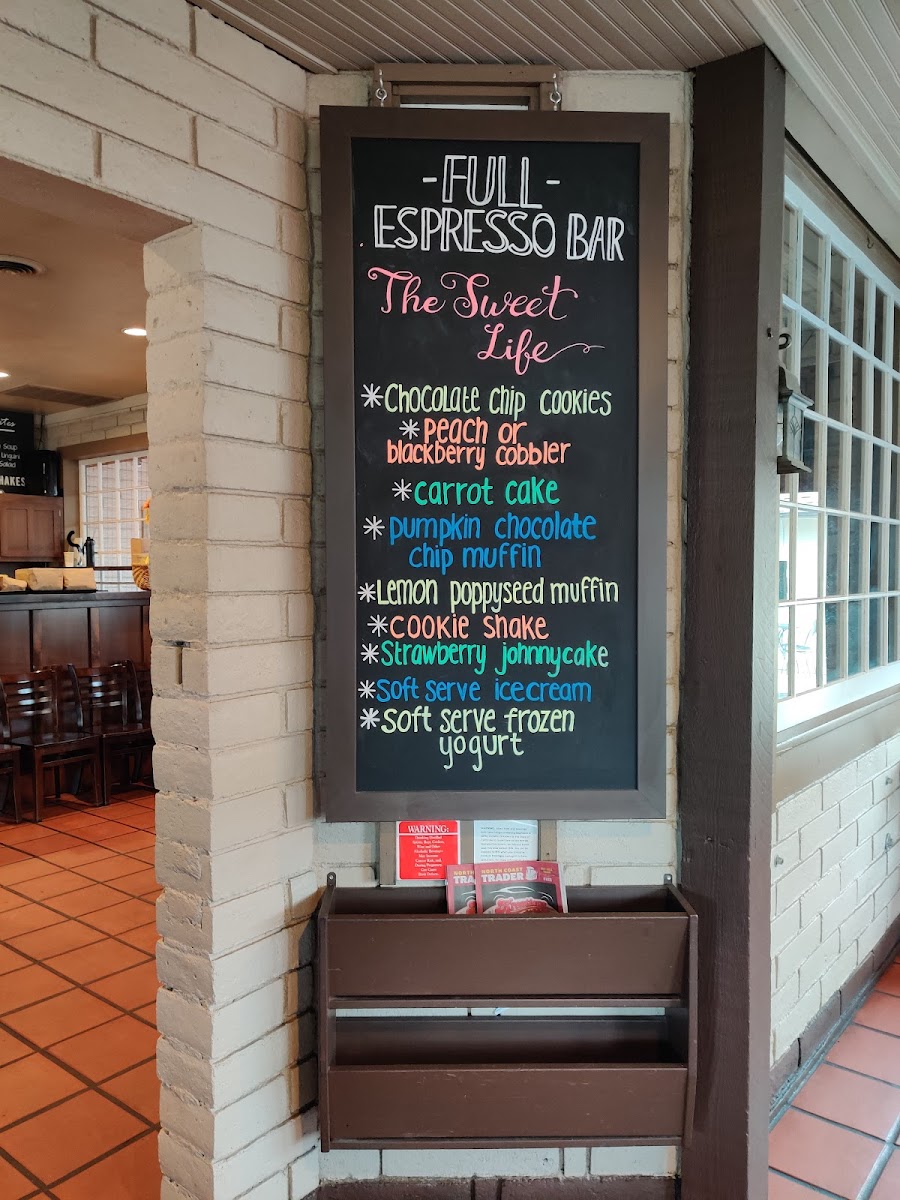 -FULL-
ESPRESSO BAR
The Sweet
Life
*Chocolate chip cookies
*peach or
blackberry cobbler
*carrot cake
*pumpkin chocolate
chip muffin
*Lemon poppyseed muffin
*cookie shake
*Strawberry johnnycake
*Soft serve ice cream
*Soft serve frozen
yogurt
Soup
Salad
HAKES
WARNING:
NORTH COAST
TRADER